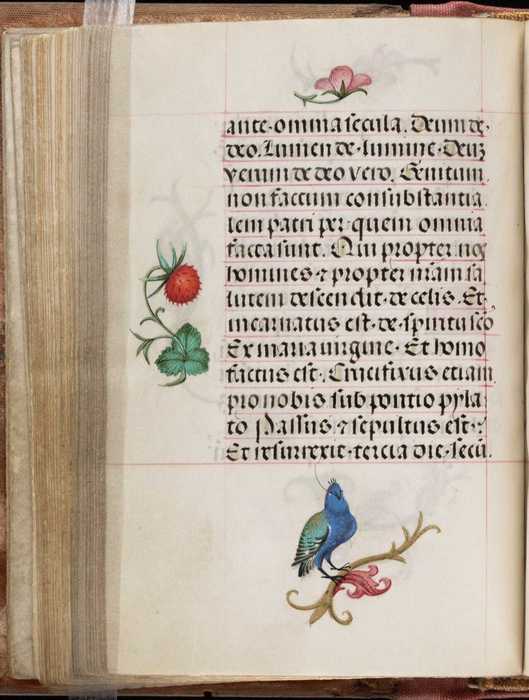 ante omnia secula. Deum de
deo. Lumen de lumine. Deuz
verum de deo vero. Genitum
non factum consubstantia
lem patri per quem omnia
facta sunt. Qui propter nos
homines ⁊ propter nr̃am sa
lutem descendit de celis. Et
incarnatus est de spiritu sc̃o
Ex maria uirgine. Et homo
factus est. Crucifixus etiam
pro nobis sub pontio pyla
to passus ⁊ sepultus est.
Et resurrexit tercia die secũ